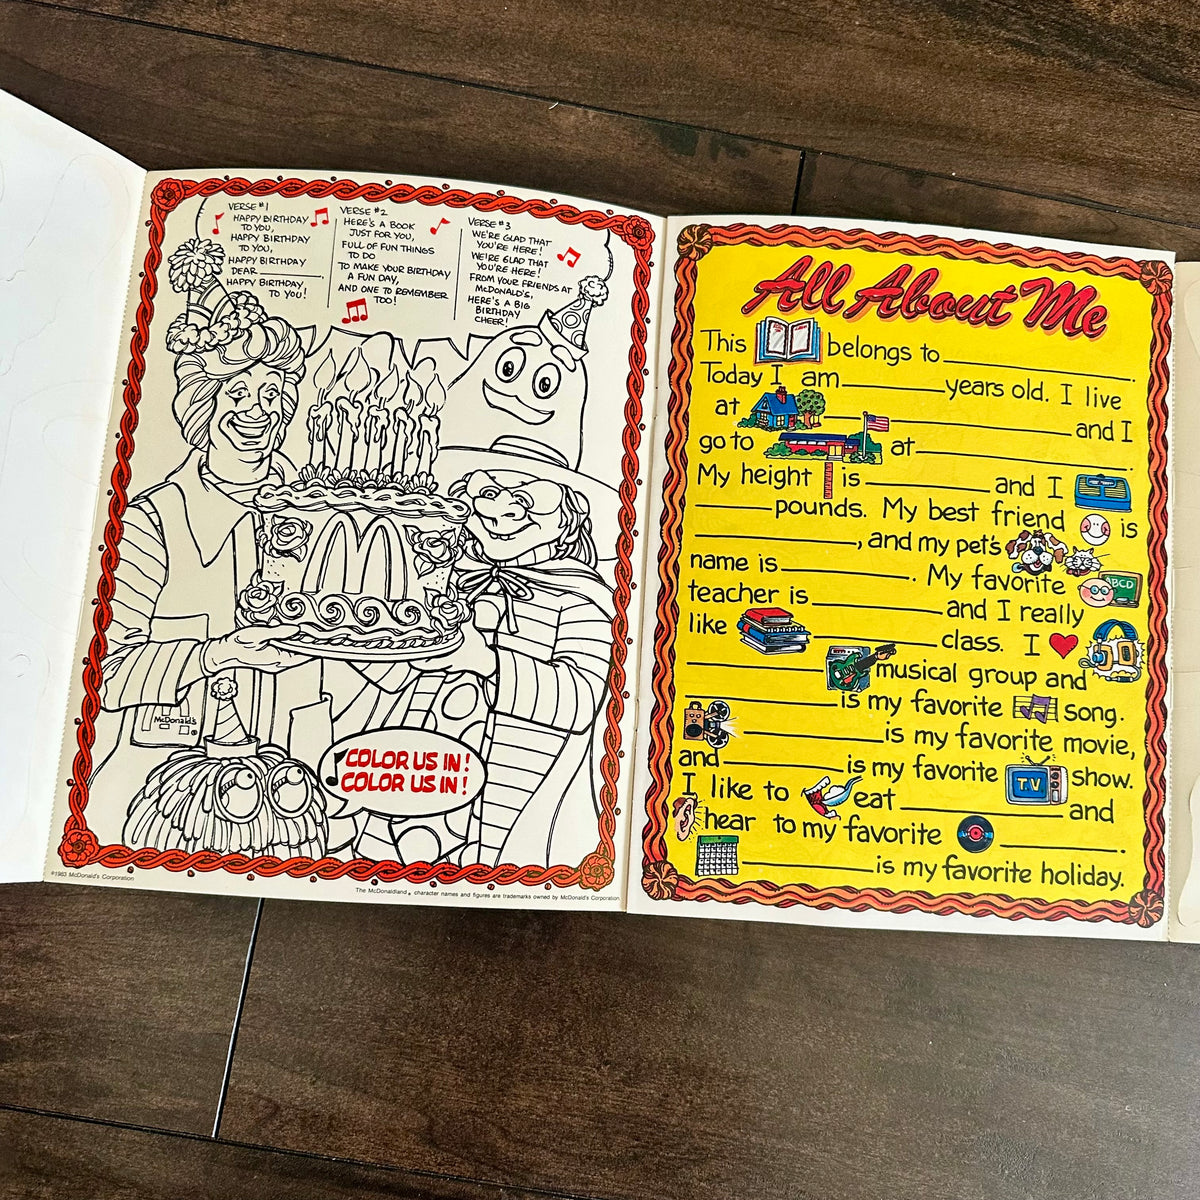 VERSE #1
HAPPY BIRTHDAY
TO YOU,
HAPPY BIRTHDAY
TO YOU,
HAPPY BIRTHDAY
DEAR ________.
HAPPY BIRTHDAY,
TO YOU!
VERSE #2
HERE'S A BOOK
JUST FOR YOU,
FULL OF FUN THINGS
TO DO
TO MAKE YOUR BIRTHDAY
A FUN DAY,
AND ONE TO REMEMBER
TOO!
VERSE #3
WE'RE GLAD THAT
YOU'RE HERE!
WE'RE GLAD THAT
YOU'RE HERE!
FROM YOUR FRIENDS AT
McDONALD'S,
HERE'S A BIG
BIRTHDAY
CHEER!
McDonald's
COLOR US IN!
COLOR US IN!
©1983 McDonald's Corporation
The McDonaldland® character names and figures are trademarks owned by McDonald's Corporation
All About Me
This belongs to ________.
Today I am ________ years old. I live
at ________ and I
go to at ________.
My height is ________ and I
________ pounds. My best friend is
________, and my pet's
name is ________. My favorite
teacher is ________ and I really
like ________ class. I
________ musical group and
________ is my favorite song.
________ is my favorite movie,
and ________ is my favorite TV show.
I like to eat ________ and
hear to my favorite ________.
________ is my favorite holiday.
ABCD